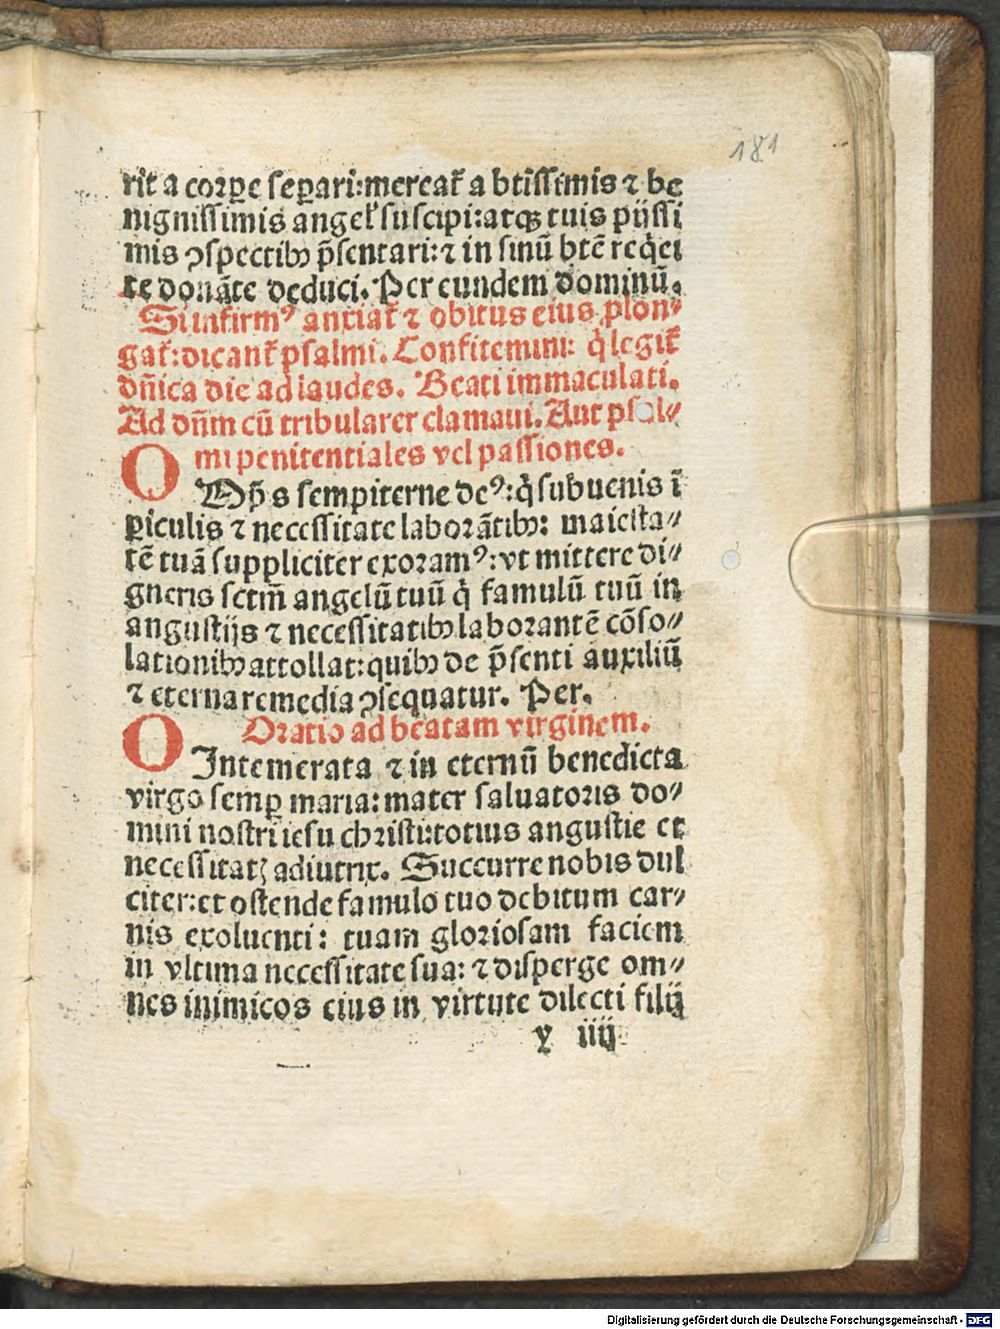 181
rit a corꝑe seꝑari:mereat᷑ a btissimis ⁊ be
nignissimis angel᷑ suscipi:atqꝫ tuis pijssi
mis ꝯspectibꝰ p̄sentari:⁊ in sinū btē reqͥei
te donāte deduci. Per eundem dominū.
Si infirmꝰ anxiat᷑ ⁊ obitus eius ꝓlon⸗
gat᷑:dicant᷑ psalmi. Confitemini: qͥ legit᷑
dn̄ica die ad laudes. Beati immaculati.
Ad dn̄m cū tribularer clamaui. Aut psal⸗
mi penitentiales vel passiones.
OMp̄s sempiterne deꝰ:qͥ subuenis ī
ꝑiculis ⁊ necessitate laborātibꝰ: maiesta⸗
tē tuā suppliciter exoramꝰ:vt mittere di⸗
gneris sctm̄ angelū tuū qͥ famulū tuū in
angustijs ⁊ necessitatibꝰ laborantē cōso⸗
lationibꝰ attollat:quibꝰ de p̄senti auxiliū
⁊ eterna remedia ꝯsequatur. Per.
Oratio ad beatam virginem.
O Intemerata ⁊ in eternū benedicta
virgo semꝑ maria: mater saluatoris do⸗
mini nostri iesu christi:totius angustie et
necessitatꝫ adiutrix. Succurre nobis dul
citer:et ostende famulo tuo debitum car⸗
nis exoluenti: tuam gloriosam faciem
in vltima necessitate sua: ⁊ disperge om⸗
nes inimicos eius in virtute dilecti filij
y iiij
Digitalisierung gefördert durch die Deutsche Forschungsgemeinschaft - DFG